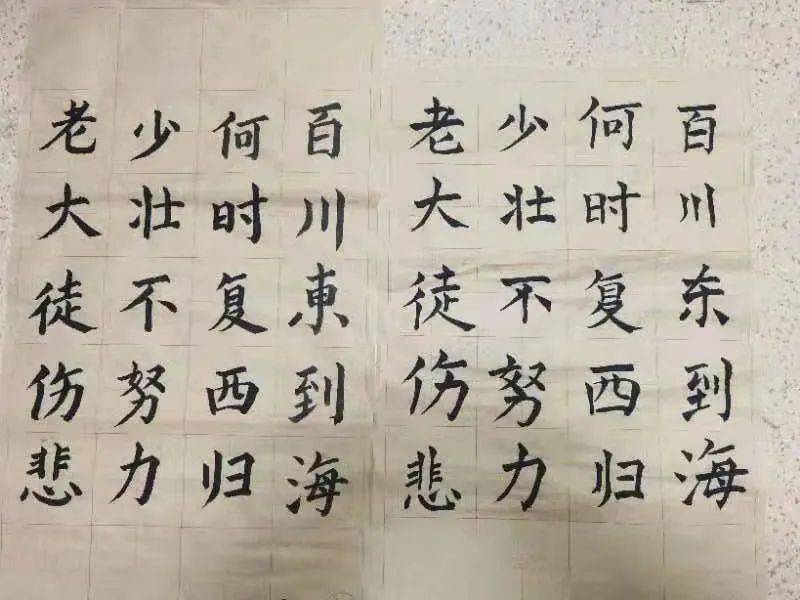 百川東到海
何时复西归
少壮不努力
老大徒伤悲
百川东到海
何时复西归
少壮不努力
老大徒伤悲